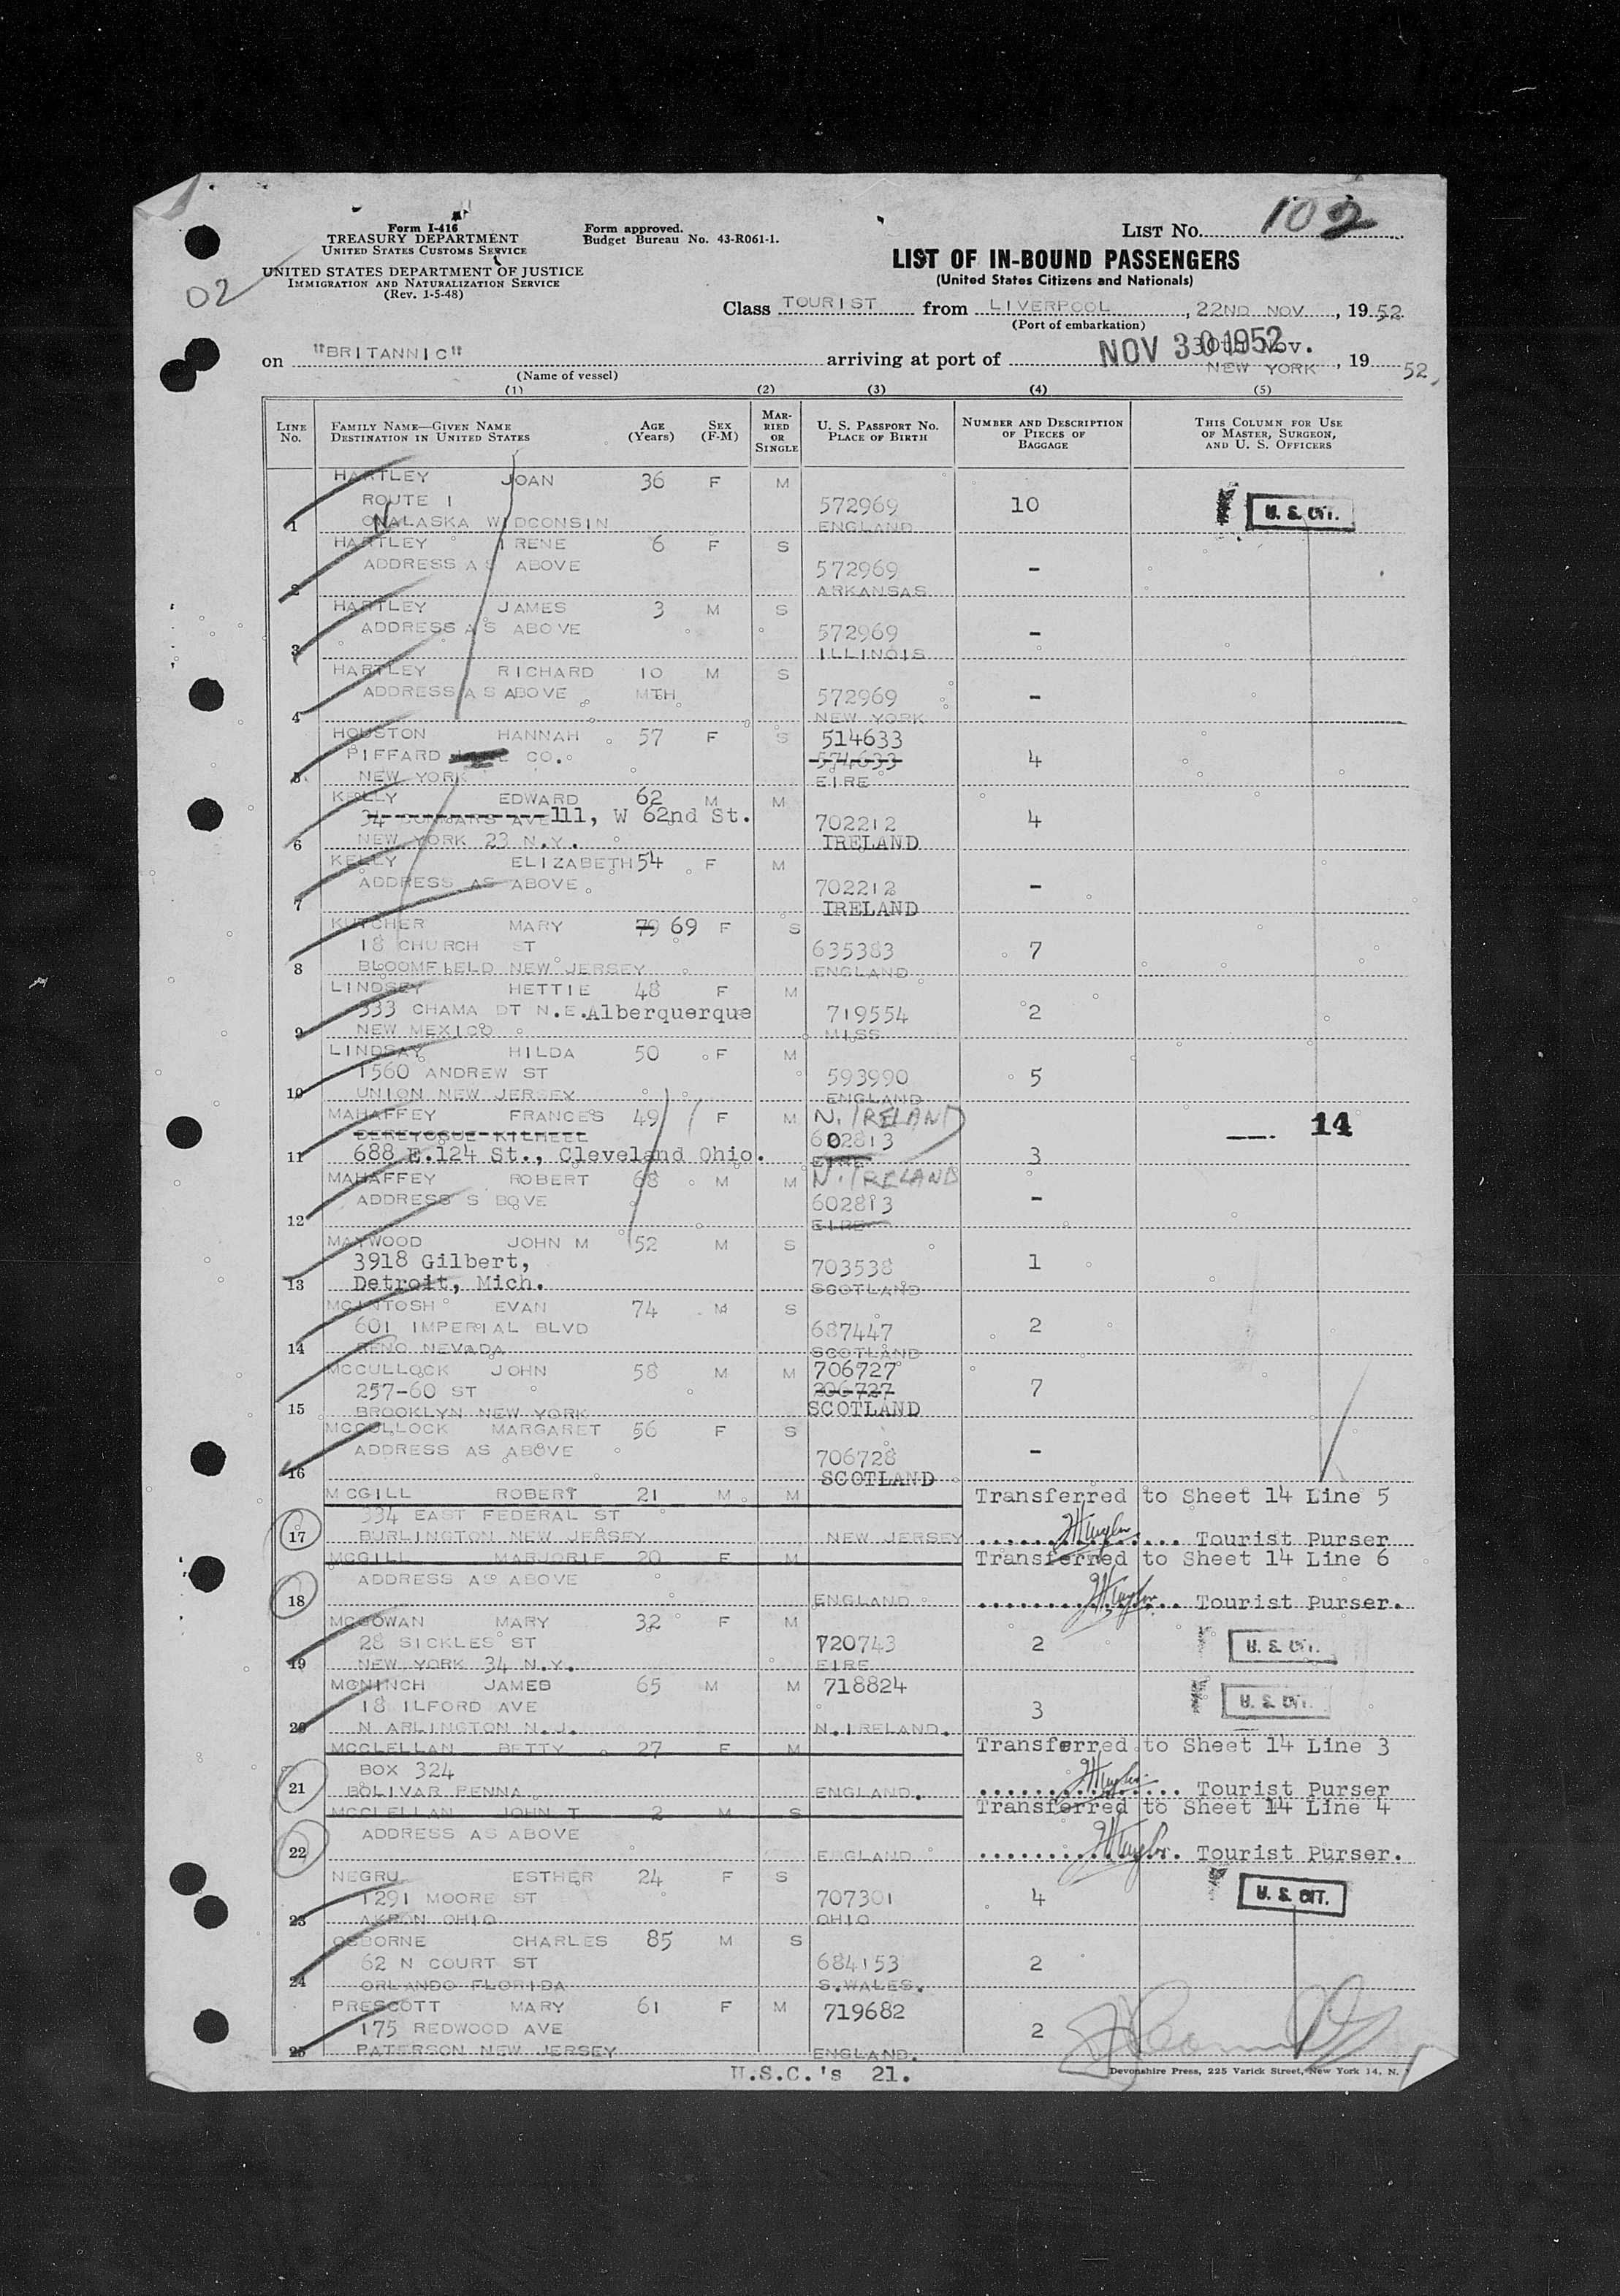 Form I-416
TREASURY DEPARTMENT
UNITED STATES CUSTOMS SERVICE
UNITED STATES DEPARTMENT OF JUSTICE
IMMIGRATION AND NATURALIZATION SERVICE
(Rev. 1-5-48)
Form approved.
Budget Bureau No. 43-R061-1.
LIST No. 102
02
LIST OF IN-BOUND PASSENGERS
(United States Citizens and Nationals)
Class TOURIST from LIVERPOOL, 22ND NOV, 1952
(Port of embarkation)
on "BRITANNIC" arriving at port of NOV 30 1952 30th Nov. NEW YORK, 19 52,
(Name of vessel)
(1) (2) (3) (4) (5)
LINE No. FAMILY NAME—GIVEN NAME DESTINATION IN UNITED STATES AGE (Years) SEX (F-M) MARRIED OR SINGLE U. S. PASSPORT NO. PLACE OF BIRTH NUMBER AND DESCRIPTION OF PIECES OF BAGGAGE THIS COLUMN FOR USE OF MASTER, SURGEON, AND U. S. OFFICERS
HARTLEY JOAN 36 F M
ROUTE 1 572969 10 U. S. CIT.
1 ONALASKA WIDCONSIN ENGLAND
HARTLEY IRENE 6 F S
ADDRESS AS ABOVE 572969 -
2 ARKANSAS
HARTLEY JAMES 3 M S
ADDRESS AS ABOVE 572969 -
3 ILLINOIS
HARTLEY RICHARD 10 M S
ADDRESS AS ABOVE MTH 572969 -
4 NEW YORK
HOUSTON HANNAH 57 F S 514633
PIFFARD CO. 574633 4
5 NEW YORK EIRE
KELLY EDWARD 62 M M
34 AVE 111, W 62nd St. 702212 4
6 NEW YORK 23 N.Y. IRELAND
KELLY ELIZABETH 54 F M
ADDRESS AS ABOVE 702212 -
7 IRELAND
KUTCHER MARY 79 69 F S
18 CHURCH ST 635383 7
8 BLOOMFIELD NEW JERSEY ENGLAND
LINDSEY HETTIE 48 F M
333 CHAMA DT N.E. Alberquerque 719554 2
9 NEW MEXICO MISS
LINDSAY HILDA 50 F M
1560 ANDREW ST 593990 5
10 UNION NEW JERSEY ENGLAND
MAHAFFEY FRANCES 49 F M N. IRELAND
602813
11 688 E.124 St., Cleveland Ohio. EIRE 3
— 14
MAHAFFEY ROBERT 68 M M N. IRELAND
ADDRESS S BOVE 602813 -
12 EIRE
MAYWOOD JOHN M 52 M S
3918 Gilbert, 703538 1
13 Detroit, Mich. SCOTLAND
MCINTOSH EVAN 74 M S
601 IMPERIAL BLVD 687447 2
14 RENO NEVADA SCOTLAND
MCCULLOCK JOHN 58 M M 706727
257-60 ST 206727 7
15 BROOKLYN NEW YORK SCOTLAND
MCCULLOCK MARGARET 56 F S
ADDRESS AS ABOVE 706728 -
16 SCOTLAND
MCGILL ROBERT 21 M M Transferred to Sheet 14 Line 5
334 EAST FEDERAL ST
17 BURLINGTON NEW JERSEY NEW JERSEY Tourist Purser
MCGILL MARJORIE 20 F M Transferred to Sheet 14 Line 6
ADDRESS AS ABOVE
18 ENGLAND Tourist Purser.
MCGOWAN MARY 32 F M
28 SICKLES ST 720743 2 U. S. CIT.
19 NEW YORK 34 N.Y. EIRE
MCNINCH JAMES 65 M M 718824
18 ILFORD AVE 3 U. S. CIT.
20 N ARLINGTON N.J. N.IRELAND.
MCCLELLAN BETTY 27 F M Transferred to Sheet 14 Line 3
BOX 324
21 BOLIVAR PENNA ENGLAND. Tourist Purser
MCCLELLAN JOHN T 2 M S Transferred to Sheet 14 Line 4
ADDRESS AS ABOVE
22 ENGLAND Tourist Purser.
NEGRU ESTHER 24 F S
1291 MOORE ST 707301 4 U. S. CIT.
23 AKRON OHIO OHIO
OSBORNE CHARLES 85 M S
62 N COURT ST 684153 2
24 ORLANDO FLORIDA S.WALES.
PRESCOTT MARY 61 F M 719682
175 REDWOOD AVE 2
25 PATERSON NEW JERSEY ENGLAND.
U.S.C.'s 21.
Devonshire Press, 225 Varick Street, New York 14, N.